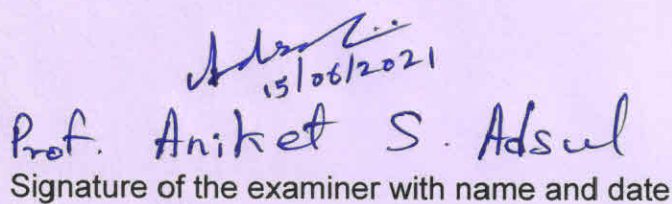 15/06/2021
Prof. Aniket S. Adsul
Signature of the examiner with name and date